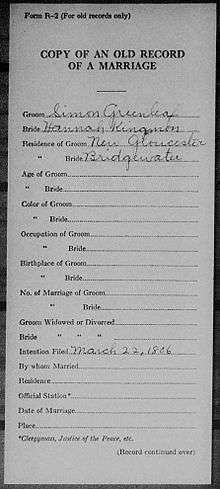 Form R-2 (For old records only)
COPY OF AN OLD RECORD
OF A MARRIAGE
Groom Simon Greenleaf
Bride Hannah Kingman
Residence of Groom New Gloucester
" Bride Bridgewater
Age of Groom
" Bride
Color of Groom
" Bride
Occupation of Groom
" Bride
Birthplace of Groom
" Bride
No. of Marriage of Groom
" Bride
Groom Widowed or Divorced
Bride " " "
Intention Filed March 22, 1806
By whom Married
Residence
Official Station*
Date of Marriage
Place
*Clergyman, Justice of the Peace, etc.
(Record continued over)